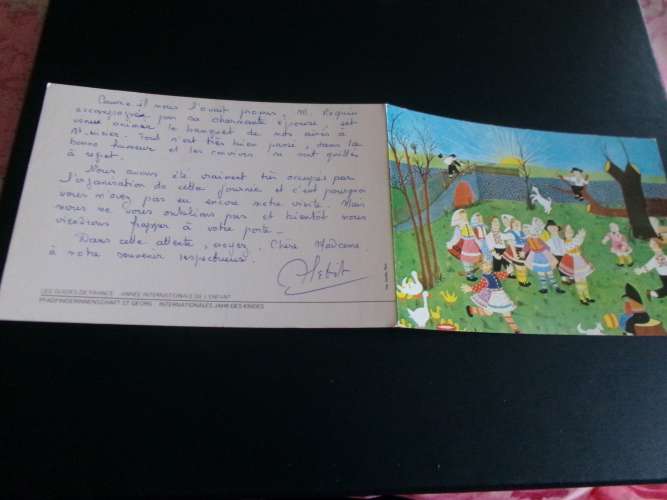 Comme il nous l'avait promis, M. Roquin
accompagné par sa charmante épouse est
venu animer le banquet de nos ainés à
. Tout s'est très bien passé, dans la
bonne humeur et les convives se sont quittés
à regret.
Nous avons été vraiment très occupés par
l'organisation de cette journée et c'est pourquoi
vous n'avez pas eu encore notre visite. Mais
nous ne vous oublions pas et bientôt nous
viendrons frapper à votre porte.
Dans cette attente, croyez, Chère Madame
à notre souvenir respectueux.
LES GUIDES DE FRANCE - ANNÉE INTERNATIONALE DE L'ENFANT
PFADFINDERINNENSCHAFT ST GEORG - INTERNATIONALES JAHR DES KINDES